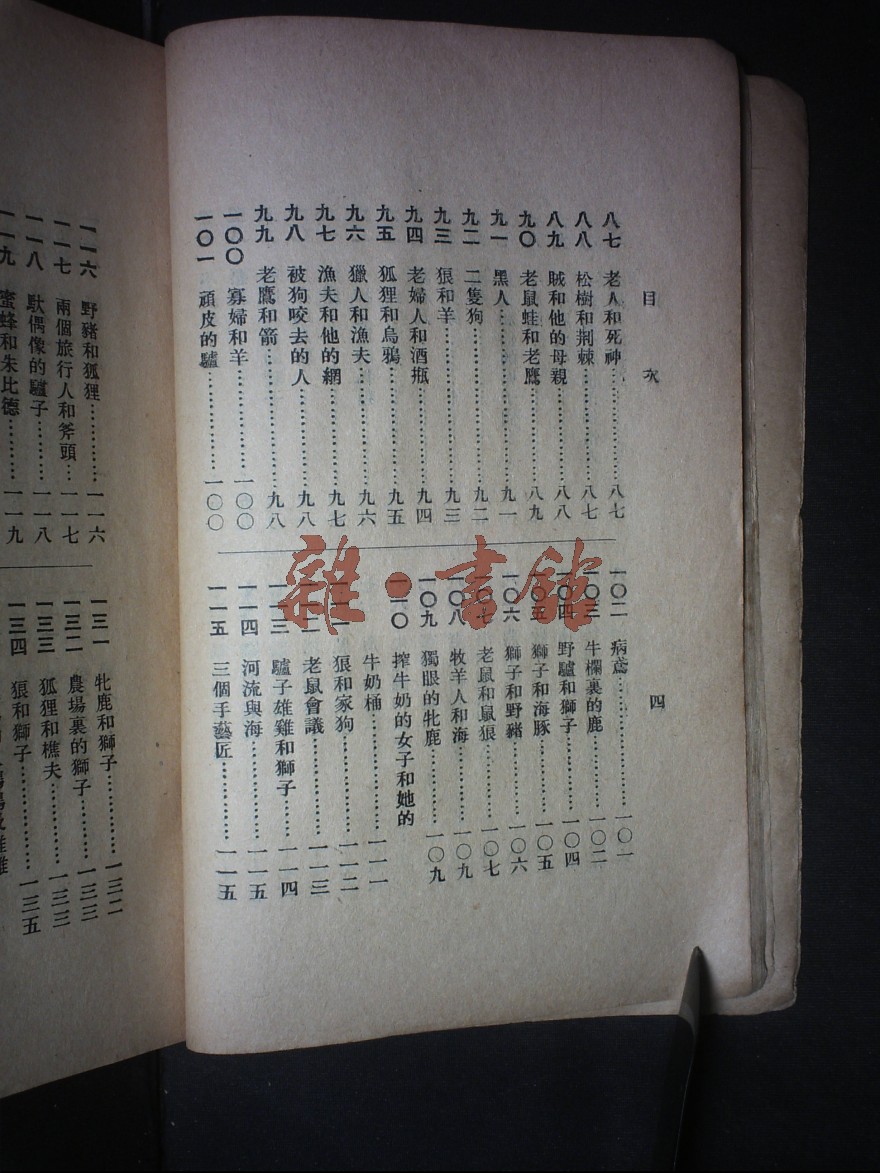 目次
四
八七 老人和死神…………八七
八八 松樹和荆棘…………八七
八九 賊和他的母親…………八八
九〇 老鼠蛙和老鷹…………八九
九一 黑人…………九一
九二 二隻狗…………九二
九三 狼和羊…………九三
九四 老婦人和酒瓶…………九四
九五 狐狸和烏鴉…………九五
九六 獵人和漁夫…………九六
九七 漁夫和他的網…………九七
九八 被狗咬去的人…………九八
九九 老鷹和箭…………九八
一〇〇 寡婦和羊…………一〇〇
一〇一 頑皮的驢…………一〇〇
一〇二 病鳶…………一〇一
一〇三 牛欄裏的鹿…………一〇二
一〇四 野驢和獅子…………一〇四
一〇五 獅子和海豚…………一〇五
一〇六 獅子和野豬…………一〇六
一〇七 老鼠和鼠狼…………一〇七
一〇八 牧羊人和海…………一〇九
一〇九 獨眼的牝鹿…………一〇九
一一〇 搾牛奶的女子和她的
牛奶桶…………一一一
一一一 狼和家狗…………一一二
一一二 老鼠會議…………一一三
一一三 驢子雄雞和獅子…………一一四
一一四 河流與海…………一一五
一一五 三個手藝匠…………一一五
雜·書館
一一六 野豬和狐狸…………一一六
一一七 兩個旅行人和斧頭…一一七
一一八 馱偶像的驢子…………一一八
一一九 蜜蜂和朱比德…………一一九
一三一 牝鹿和獅子…………一三二
一三二 農場裏的獅子…………一三三
一三三 狐狸和樵夫…………一三三
一三四 狼和獅子…………一三五